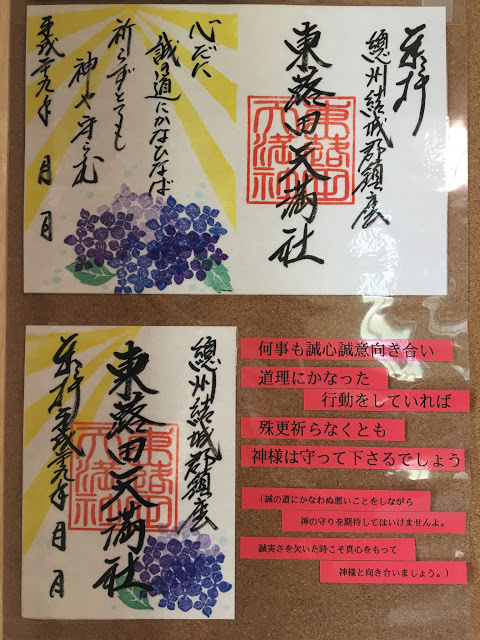 奉拝
總州結城郡鎮座
東蕗田天満社
東蕗田
天満社
心だに
誠の道にかなひなば
祈らずとても
神や守らむ
平成二十九年 月 日
總州結城郡鎮座
東蕗田天満社
東蕗田
天満社
奉拝 平成二十九年 月 日
何事も誠心誠意向き合い
道理にかなった
行動をしていれば
殊更祈らなくとも
神様は守って下さるでしょう
(誠の道にかなわぬ悪いことをしながら
神の守りを期待してはいけませんよ。
誠実さを欠いた時こそ真心をもって
神様と向き合いましょう。)